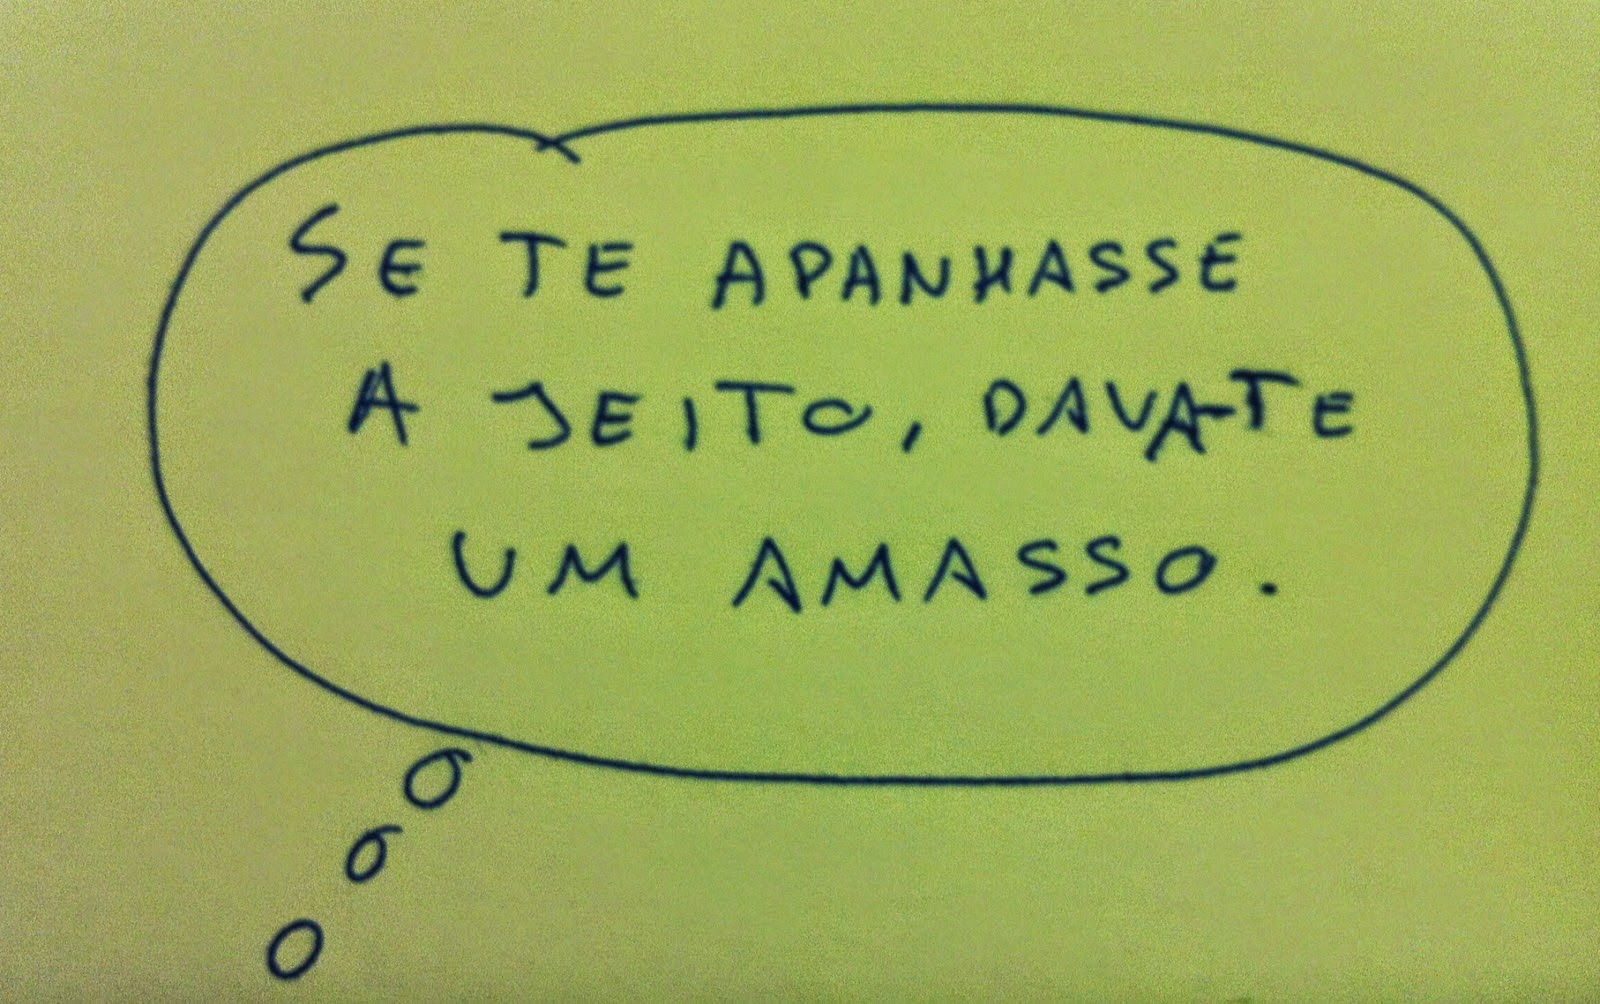 SE TE APANHASSE
A JEITO, DAVA-TE
UM AMASSO.